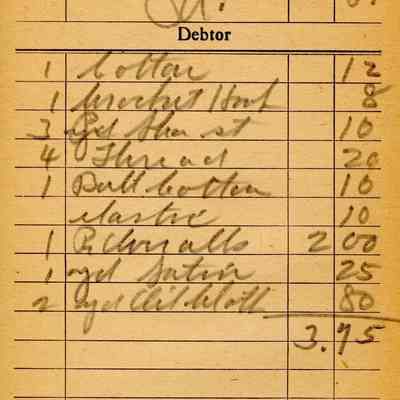 Debtor
1 Cotton 12
1 Crochet Hook 8
3 yd 10
4 Thread 20
1 Ball Cotton 10
elastic 10
1 Pr Overalls 2 00
1 yd Satin 25
2 yd Oil Cloth 80
3.75